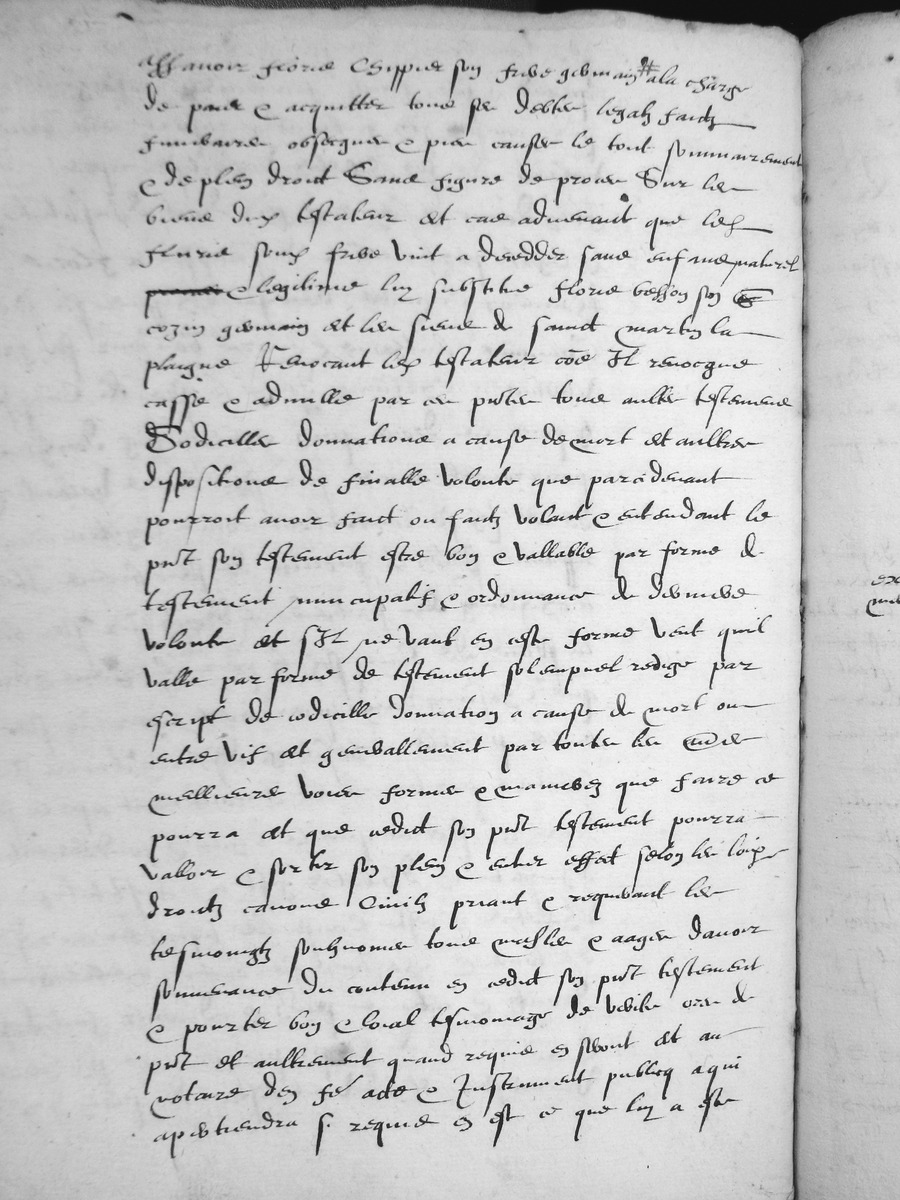 assavoir florie Chippier son frere germain # a la charge
de paier & acquitter tous ses debtes legatz faictz
funeraires obsecques & pies causes le tout sommairement
& de plein droict Sans figure de proces Sur les
biens dud testateur et cas advenant que led
florie sond frere vint a decedder sans enfans naturel
& legitime luy substitue florie besson son
cozin germain et les siens de sainct martin la
plaigne Revocant led testateur coe Il revocque
casse & adnulle par ces pntes tous aultres testemens
Codicilles donnations a cause de mort et aultres
dispositions de finalle volonte que par cidevant
pourroit avoir faict ou faictz volant & entendant le
pnt son testement estre bon & vallable par forme de
testement nuncupatif & ordonnance de derniere
volonte et sIl ne vault en ceste forme veut quil
valle par forme de testement solempnel redige par
escript de codicille donnation a cause de mort ou
entre vif et generallement par toutes les
meillieures voies formes & manieres que faire ce
pourra et que cedict son pnt testement pourra
valloir & sortir son plein & entier effect selon les loix
droictz canons Civilz priant & requerant les
tesmoingtz soubnomes tous masles & aages davoir
souvenance du contenu en cedict son pnt testement
& pourter bon & loial tesmoniage de verite ores de
pnt et aultrement quand requis en seront et au
notaire den fe acte & Instrument publicq a qui
apertiendra si requis en est ce que luy a este